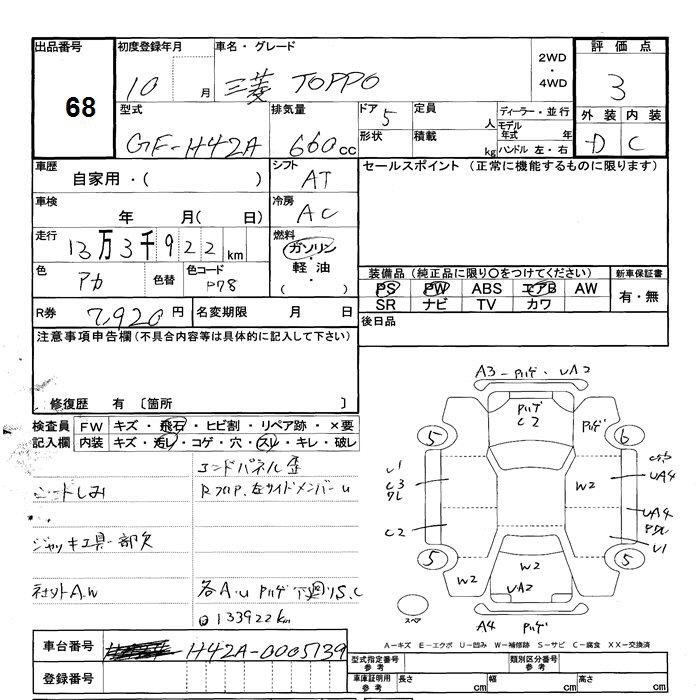 出品番号 初度登録年月 車名・グレード 2WD・4WD 評価点
68 10 月 三菱 TOPPO 3
型式 排気量 ドア 5 定員 人 ディーラー・並行 外装 内装
GF-H42A 660cc 形状 積載 kg モデル年式 年 D C
ハンドル 左・右
車歴 シフト セールスポイント (正常に機能するものに限ります)
自家用・( ) AT
車検 冷房
年 月( 日) AC
走行 燃料
13万3千922km ガソリン・軽油・( )
色 色替 色コード 装備品 (純正品に限り○をつけてください) 新車保証書
アカ P78 PS PW ABS エアB AW 有・無
SR ナビ TV カワ
R券 7,920円 名変期限 月 日 後日品
注意事項申告欄 (不具合内容等は具体的に記入して下さい)
修復歴 有 〔箇所 〕
検査員 FW キズ・飛石・ヒビ割・リペア跡・×要
記入欄 内装 キズ・汚レ・コゲ・穴・スレ・キレ・破レ
エンドパネル歪
シートしみ
ジャッキ工具一部欠
各A・U
133922km
車台番号 H42A-0005139
登録番号
A3 UA2
C2
5 6
U1 C3 W2 UA4
C2 UA4 U1
5 5
W2 W2 UA2
スペア A4
A-キズ E-エクボ U-凹み W-補修跡 S-サビ C-腐食 XX-交換済
型式指定番号 参考 類別区分番号 参考
車庫証明用 参考 長さ cm 幅 cm 高さ cm